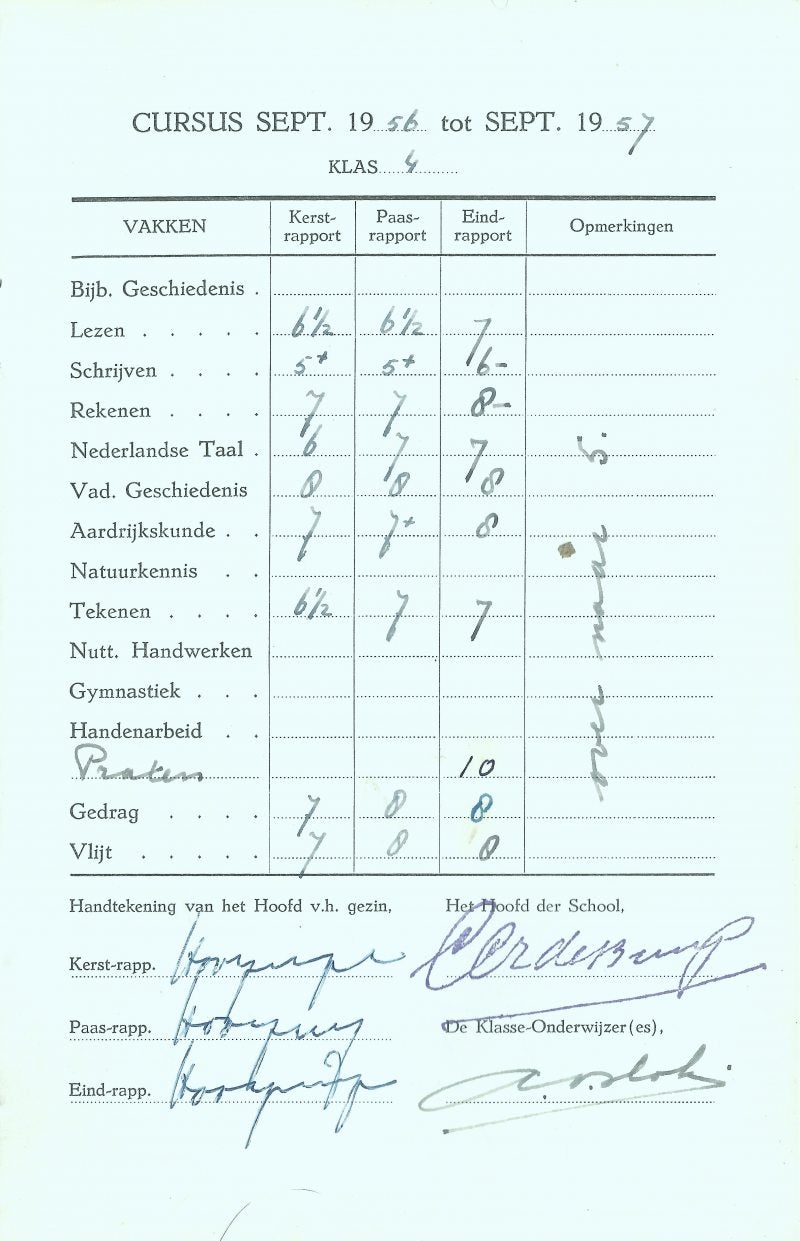 CURSUS SEPT. 1956 tot SEPT. 1957
KLAS 4
VAKKEN Kerst-rapport Paas-rapport Eind-rapport Opmerkingen
Bijb. Geschiedenis .
Lezen . . . . . 6½ 6½ 7
Schrijven . . . . 5+ 5+ 6-
Rekenen . . . . 7 7 8-
Nederlandse Taal . 6 7 7
Vad. Geschiedenis 8 8 8
Aardrijkskunde . . 7 7+ 8
Natuurkennis . .
Tekenen . . . . 6½ 7 7
Nutt. Handwerken
Gymnastiek . . .
Handenarbeid . .
Praten 10
Gedrag . . . . 7 8 8
Vlijt . . . . . 7 8 8
over naar 5.
Handtekening van het Hoofd v.h. gezin, Het Hoofd der School,
Kerst-rapp.
Paas-rapp. De Klasse-Onderwijzer(es),
Eind-rapp.